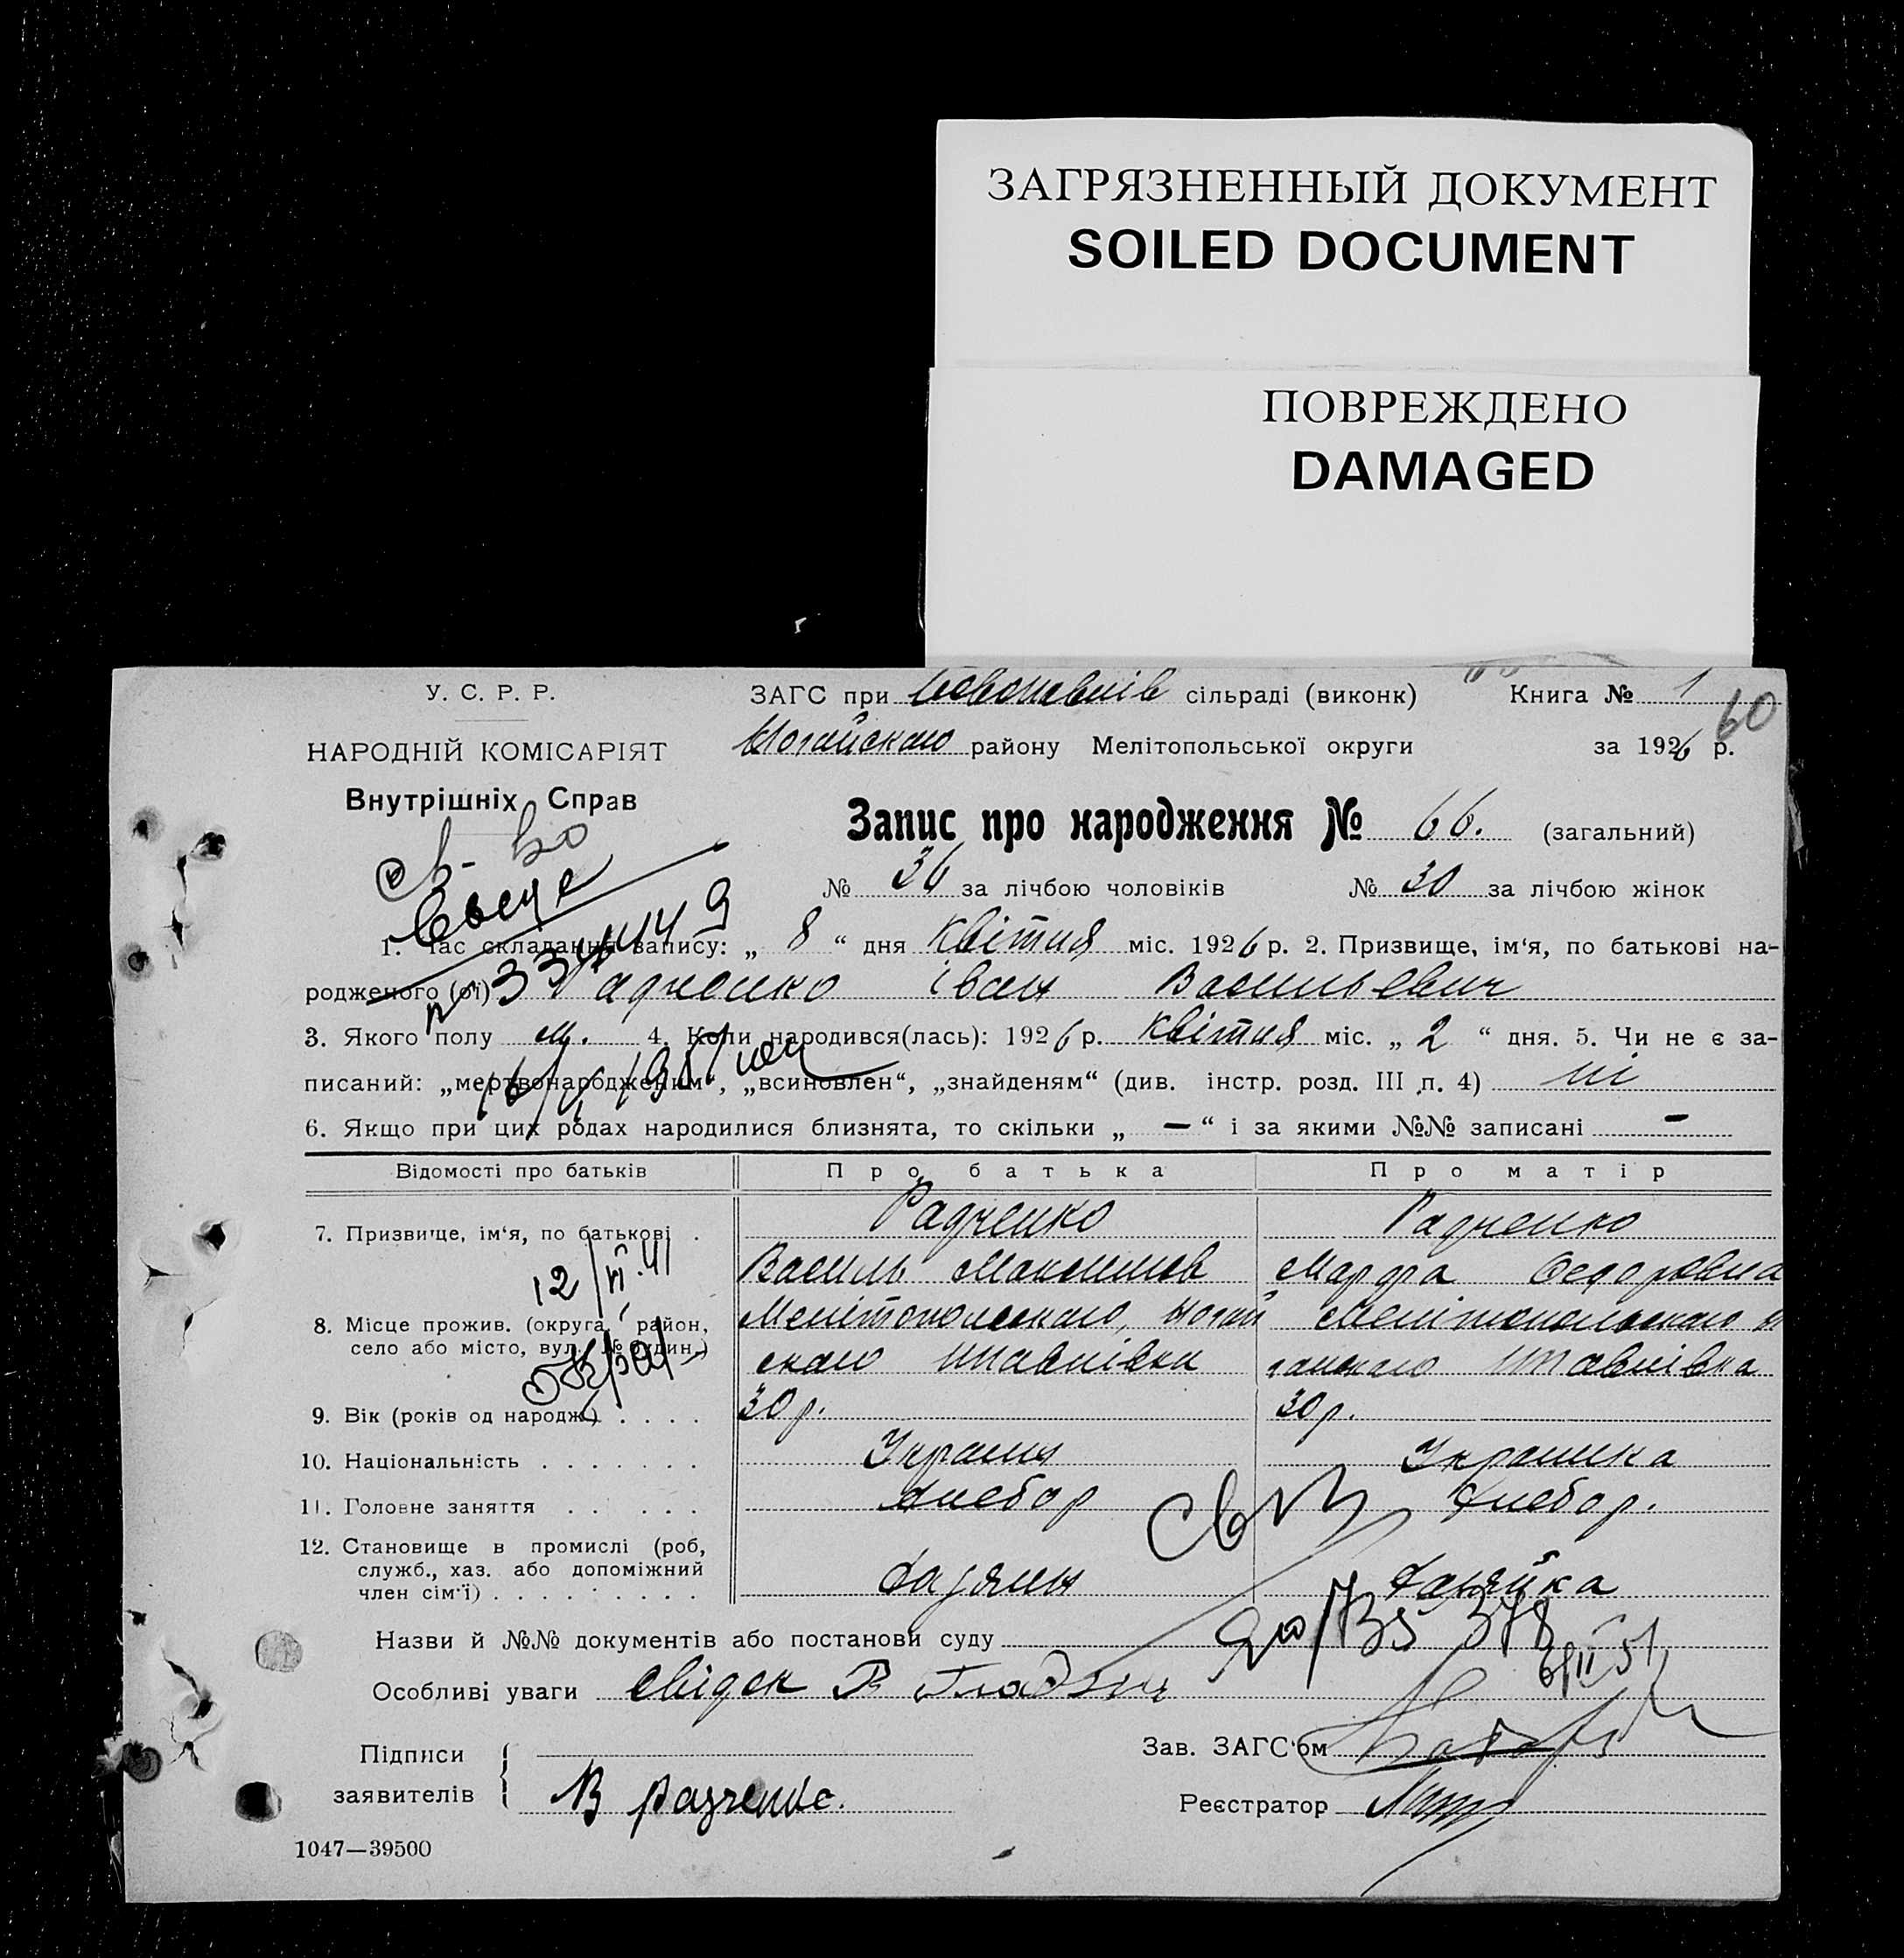 ЗАГРЯЗНЕННЫЙ ДОКУМЕНТ
SOILED DOCUMENT
ПОВРЕЖДЕНО
DAMAGED
У. С. Р. Р.
НАРОДНІЙ КОМІСАРІЯТ
Внутрішніх Справ
ЗАГС при сільраді (виконк) Книга № 1
60
Ногайского району Мелітопольської округи за 1926 р.
Запис про народження № 66. (загальний)
№ 36 за лічбою чоловіків № 30 за лічбою жінок
1. Час складання запису: „ 8 “ дня Квітня міс. 1926 р. 2. Призвище, ім‘я, по батькові на-
родженого (ої) Радченко Іван Васильевич
3. Якого полу м. 4. Коли народився(лась): 1926 р. Квітня міс. „ 2 “ дня. 5. Чи не є за-
писаний: „мертвонародженим“, „всиновлен“, „знайденям“ (див. інстр. розд. III п. 4) ні
6. Якщо при цих родах народилися близнята, то скільки „ — “ і за якими №№ записані —
Відомості про батьків Про батька Про матір
7. Призвище, ім‘я, по батькові . Радченко Радченко
Василь Максимов Марфа Федоровна
12/VI.41
8. Місце прожив. (округа, район, Мелітопольского, Ногай Мелітопольского н
село або місто, вул. № будин.) ского
9. Вік (років од народж.) . . . . 30 р. 30 р.
10. Національність . . . . . . . Украин Украинка
11. Головне заняття . . . . . . хлебор хлебор.
12. Становище в промислі (роб,
служб., хаз. або допоміжний
член сім‘ї) . . . . . . . . . Хазяин Хазяйка
Назви й №№ документів або постанови суду
378
Особливі уваги свідок
Підписи
заявителів В Радченко.
Зав. ЗАГС‘ом
Реєстратор
1047—39500